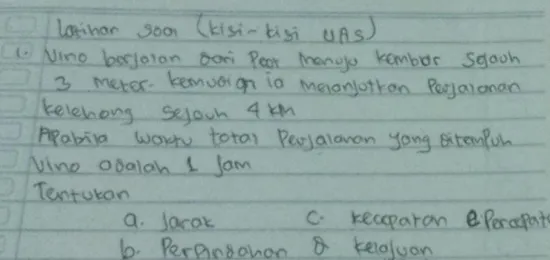 Latihan soal (kisi-kisi UAS)
1. Vino berjalan dari Pear menuju kambar sejauh
3 meter. kemudian ia melanjutkan Perjalanan
kelehong sejauh 4 km
APabila waktu total Perjalanan yang ditempuh
Vino adalah 1 Jam
Tentukan
a. Jarak c. kecepatan e Percepat
b. Perpindahan d kelajuan